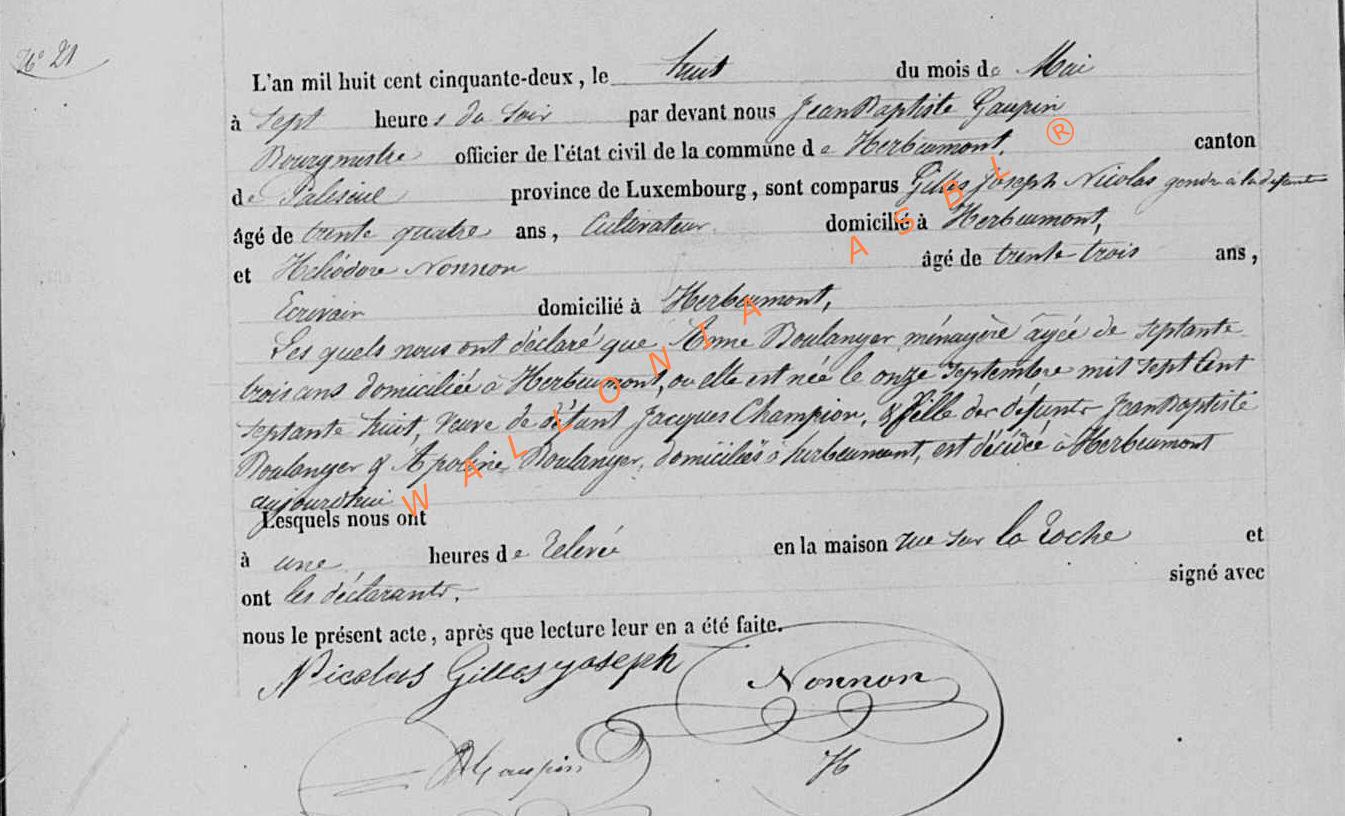 N° 21
L'an mil huit cent cinquante-deux, le huit du mois de Mai
à Sept heures du Soir par devant nous Jean Baptiste Gaupin
Bourgmestre officier de l'état civil de la commune de Herbeumont, canton
de Paliseul province de Luxembourg, sont comparus Gilles Joseph Nicolas gendre à la défunte
âgé de trente quatre ans, Cultivateur domicilié à Herbeumont,
et Héliodore Nonnon âgé de trente-trois ans,
Ecrivain domicilié à Herbeumont,
Les quels nous ont déclaré que Anne Boulanger ménagère âgée de septante
trois ans domiciliée à Herbeumont, ou elle est née le onze Septembre mil sept Cent
septante huit, veuve de défunt Jacques Champion, & fille des défunts Jean Baptiste
Boulanger & Apoline Boulanger, domiciliés à herbeumont, est décédée à Herbeumont
aujourd'hui
Lesquels nous ont
à une heures de relevée en la maison rue sur la roche et
ont les déclarants. signé avec
nous le présent acte, après que lecture leur en a été faite.
Nicolas Gilles joseph Nonnon
Gaupin H
WALLONIA ASBL ®